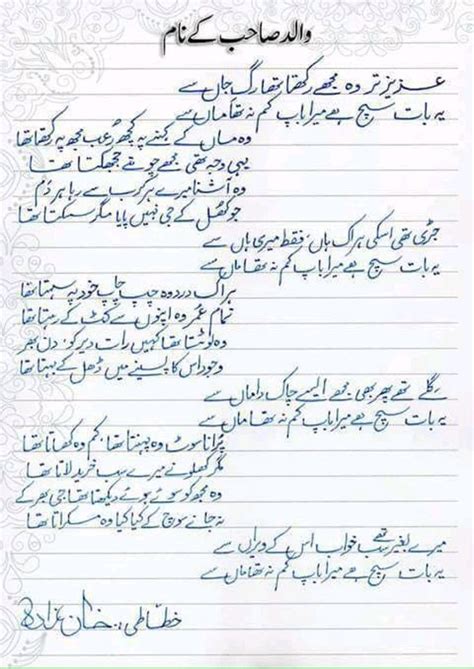 والد صاحب کے نام
عزیز تر وہ مجھے رکھتا تھا رگِ جاں سے
یہ بات سچ ہے میرا باپ کم نہ تھا ماں سے
وہ ماں کے کہنے پہ کچھ رُعب مجھ پہ رکھتا تھا
یہی وجہ تھی مجھے چومتے جھجکتا تھا
وہ آشنا میرے ہر کرب سے رہا ہر دَم
جو کھُل کے جی نہیں پایا مگر سسکتا تھا
جڑی تھی اسکی ہر اک ہاں، فقط میری ہاں سے
یہ بات سچ ہے میرا باپ کم نہ تھا ماں سے
ہر اک درد وہ چپ چاپ خود پہ سہتا تھا
تمام عُمر وہ اپنوں سے کٹ کے رہتا تھا
وہ لوٹتا تھا کہیں رات دیر کو، دن بھر
وجود اس کا پسینے میں ڈھل کے بہتا تھا
گلے تھے پھر بھی مجھے ایسے چاک داماں سے
یہ بات سچ ہے میرا باپ کم نہ تھا ماں سے
پرانا سوٹ وہ پہنتا تھا، کم وہ کھاتا تھا
مگر کھلونے میرے سب خرید لاتا تھا
وہ مجھ کو سوئے ہوئے دیکھتا تھا جی بھر کے
نہ جانے سوچ کے کیا کیا وہ مسکراتا تھا
میرے بغیر تھے سب خواب اس کے ویراں سے
یہ بات سچ ہے میرا باپ کم نہ تھا ماں سے
خطاطی: خان زادہ